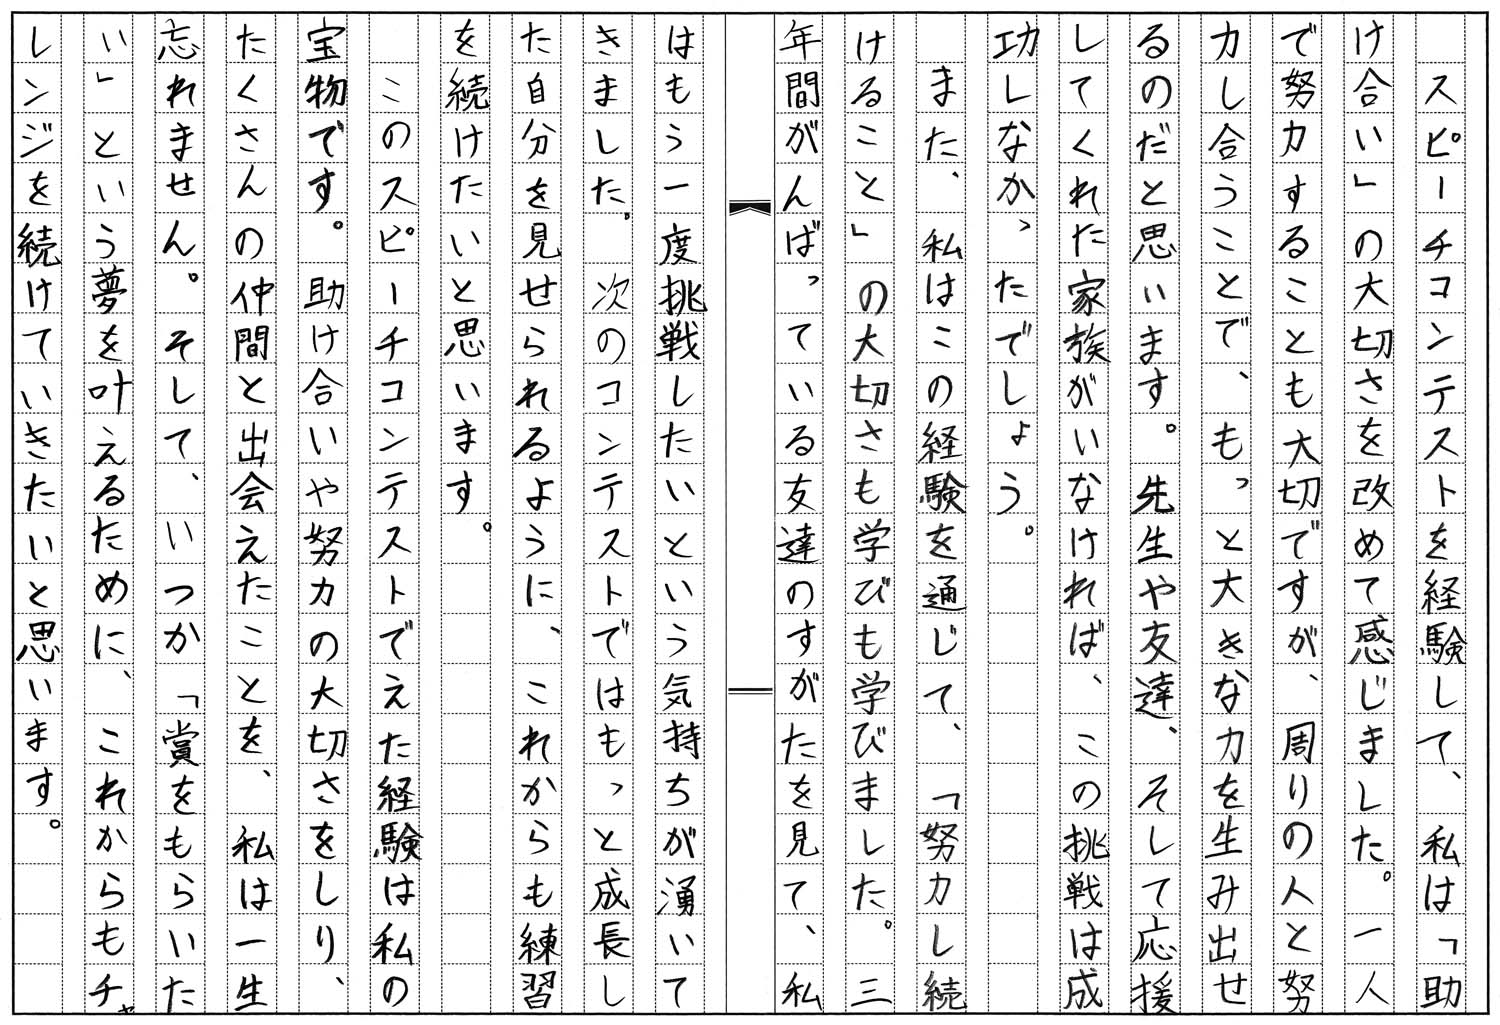 スピーチコンテストを経験して、私は「助
け合い」の大切さを改めて感じました。一人
で努力することも大切ですが、周りの人と努
力し合うことで、もっと大きな力を生み出せ
るのだと思います。先生や友達、そして応援
してくれた家族がいなければ、この挑戦は成
功しなかったでしょう。
　また、私はこの経験を通じて、「努力し続
けること」の大切さも学びも学びました。三
年間がんばっている友達のすがたを見て、私
はもう一度挑戦したいという気持ちが湧いて
きました。次のコンテストではもっと成長し
た自分を見せられるように、これからも練習
を続けたいと思います。
　このスピーチコンテストでえた経験は私の
宝物です。助け合いや努力の大切さをしり、
たくさんの仲間と出会えたことを、私は一生
忘れません。そして、いつか「賞をもらいた
い」という夢を叶えるために、これからもチャ
レンジを続けていきたいと思います。